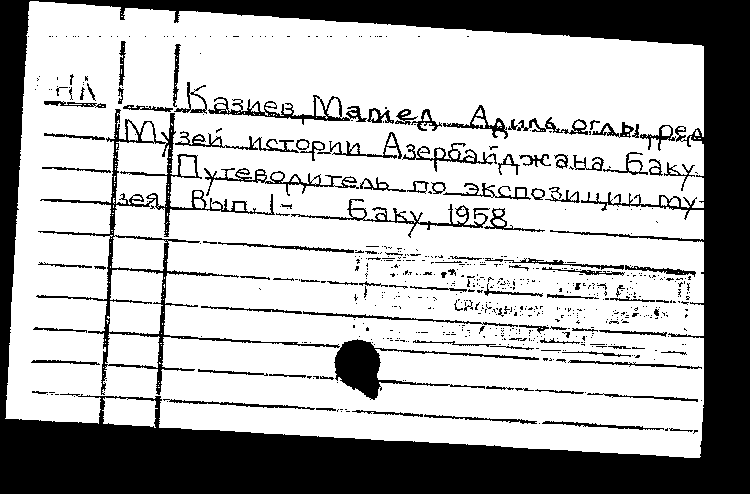 НЛ
Казиев, Мамед Адиль оглы, ред
Музей истории Азербайджана. Баку.
Путеводитель по экспозиции му-
зея. Вып. 1- Баку, 1958.